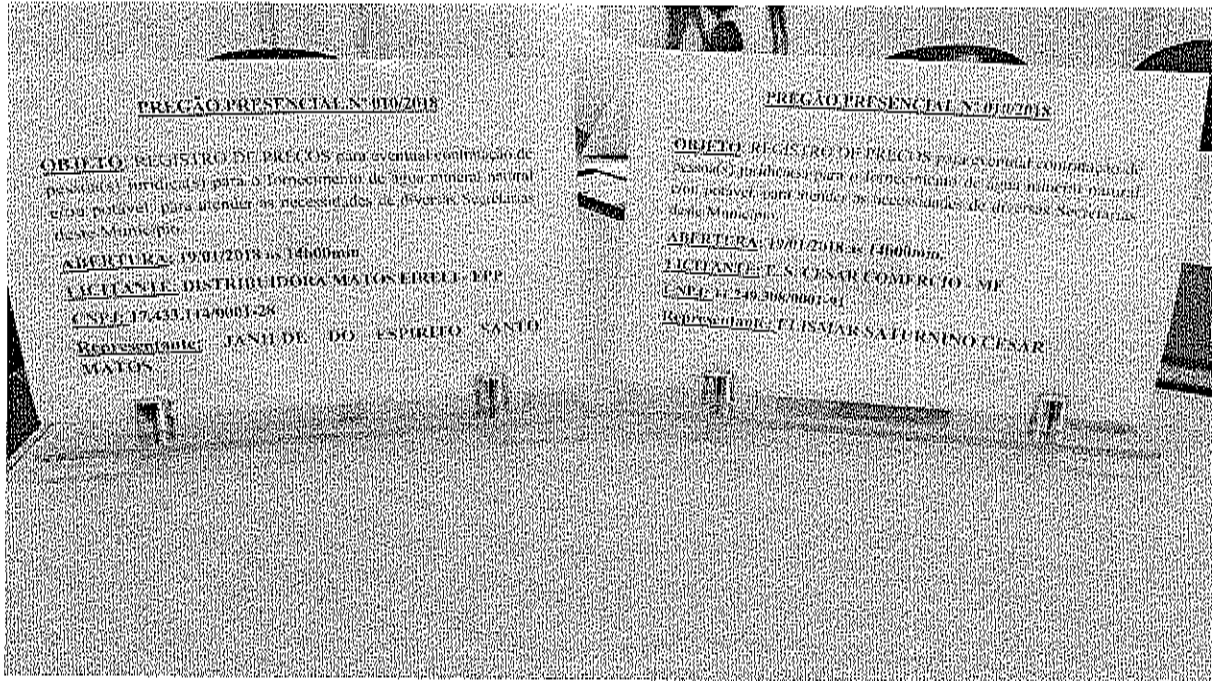 PREGÃO PRESENCIAL Nº 010/2018
OBJETO: REGISTRO DE PREÇOS para eventual contratação de
pessoa(s) jurídica(s) para o fornecimento de água mineral natural
e/ou potável, para atender as necessidades de diversas Secretarias
deste Município.
ABERTURA: 19/01/2018 às 14h00min.
LICITANTE: DISTRIBUIDORA MATOS EIRELI - EPP
CNPJ: 17.433.114/0001-28
Representante: JANILDE DO ESPIRITO SANTO
MATOS
PREGÃO PRESENCIAL Nº 010/2018
OBJETO: REGISTRO DE PREÇOS para eventual contratação de
pessoa(s) jurídica(s) para o fornecimento de água mineral natural
e/ou potável, para atender as necessidades de diversas Secretarias
deste Município.
ABERTURA: 19/01/2018 às 14h00min.
LICITANTE: T. S. CESAR COMERCIO - ME
CNPJ:
Representante: ELISMAR SATURNINO CESAR